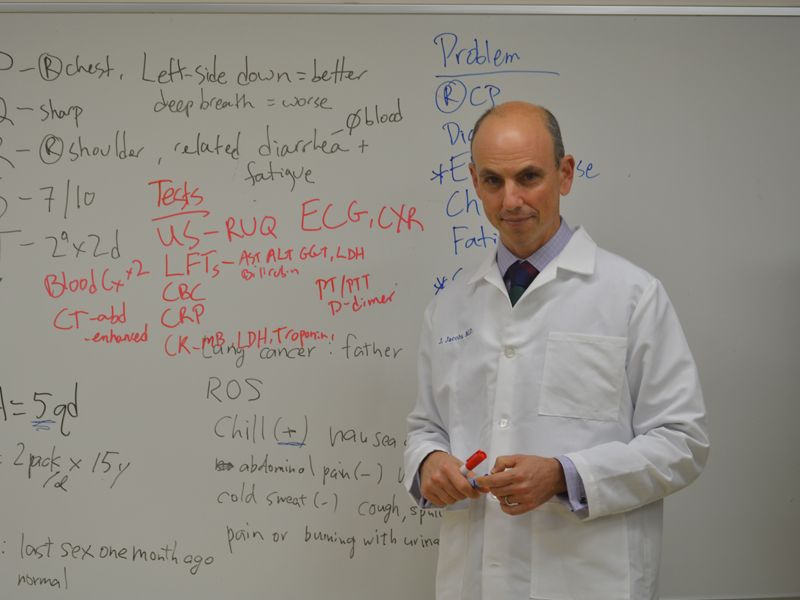 P - Ⓡ chest, Left-side down = better
deep breath = worse
Q - sharp
R - Ⓡ shoulder, related diarrhea + fatigue
- Ø blood
S - 7/10
T - 2ª x 2d
Tests
US - RUQ ECG, CXR
LFTs - AST ALT GGT, LDH
Bilirubin
Blood Cx x2
CBC
PT/PTT
D-dimer
CT-abd
-enhanced
CRP
CK-MB, LDH, Troponin
Lung cancer : father
= 5 qd
= 2 pack/d x 15y
: last sex one month ago
normal
ROS
Chill (+) nausea
abdominal pain (-)
cold sweat (-) cough,
pain or burning with
Problem
Ⓡ CP
J. Jacobs M.D.